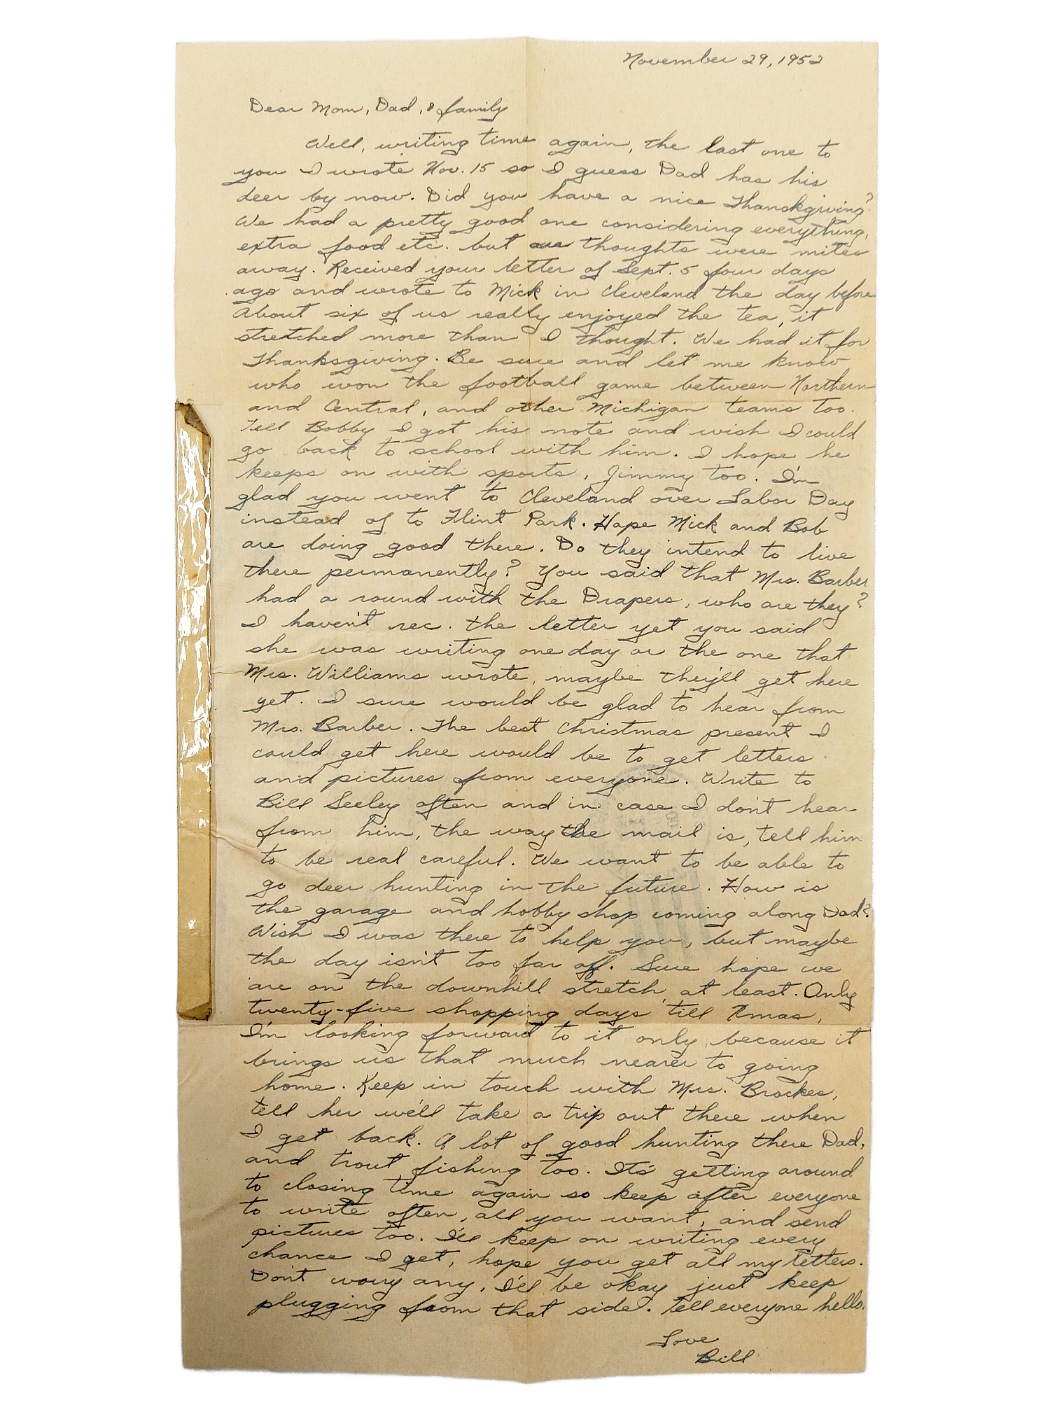 November 29, 1952
Dear Mom, Dad, & family
Well, writing time again, the last one to
you I wrote Nov. 15 so I guess Dad has his
deer by now. Did you have a nice Thanskgiving?
We had a pretty good one considering everything,
extra food etc. but our thoughts were miles
away. Received your letter of Sept. 5 four days
ago and wrote to Mick in Cleveland the day before
About six of us really enjoyed the tea, it
stretched more than I thought. We had it for
Thanksgiving. Be sure and let me know
who won the football game between Northern
and Central, and other Michigan teams too.
Tell Bobby I got his note and wish I could
go back to school with him. I hope he
keeps on with sports, Jimmy too. I'm
glad you went to Cleveland over Labor Day
instead of to Flint Park. Hope Mick and Bob
are doing good there. Do they intend to live
there permanently? You said that Mrs. Barber
had a round with the Drapers, who are they?
I haven't rec. the letter yet you said
she was writing one day or the one that
Mrs. Williams wrote, maybe they'll get here
yet. I sure would be glad to hear from
Mrs. Barber. The best Christmas present I
could get here would be to get letters
and pictures from everyone. Write to
Bill Seeley often and in case I don't hear
from him, the way the mail is, tell him
to be real careful. We want to be able to
go deer hunting in the future. How is
the garage and hobby shop coming along Dad?
Wish I was there to help you, but maybe
the day isn't too far off. Sure hope we
are on the downhill stretch at least. Only
twenty-five shopping days till Xmas,
I'm looking forward to it only because it
brings us that much nearer to going
home. Keep in touch with Mrs. Brockes,
tell her we'll take a trip out there when
I get back. A lot of good hunting there Dad,
and trout fishing too. It's getting around
to closing time again so keep after everyone
to write often, all you want, and send
pictures too. I'll keep on writing every
chance I get, hope you get all my letters.
Don't worry any, I'll be okay just keep
plugging from that side. Tell everyone hello.
Love
Bill